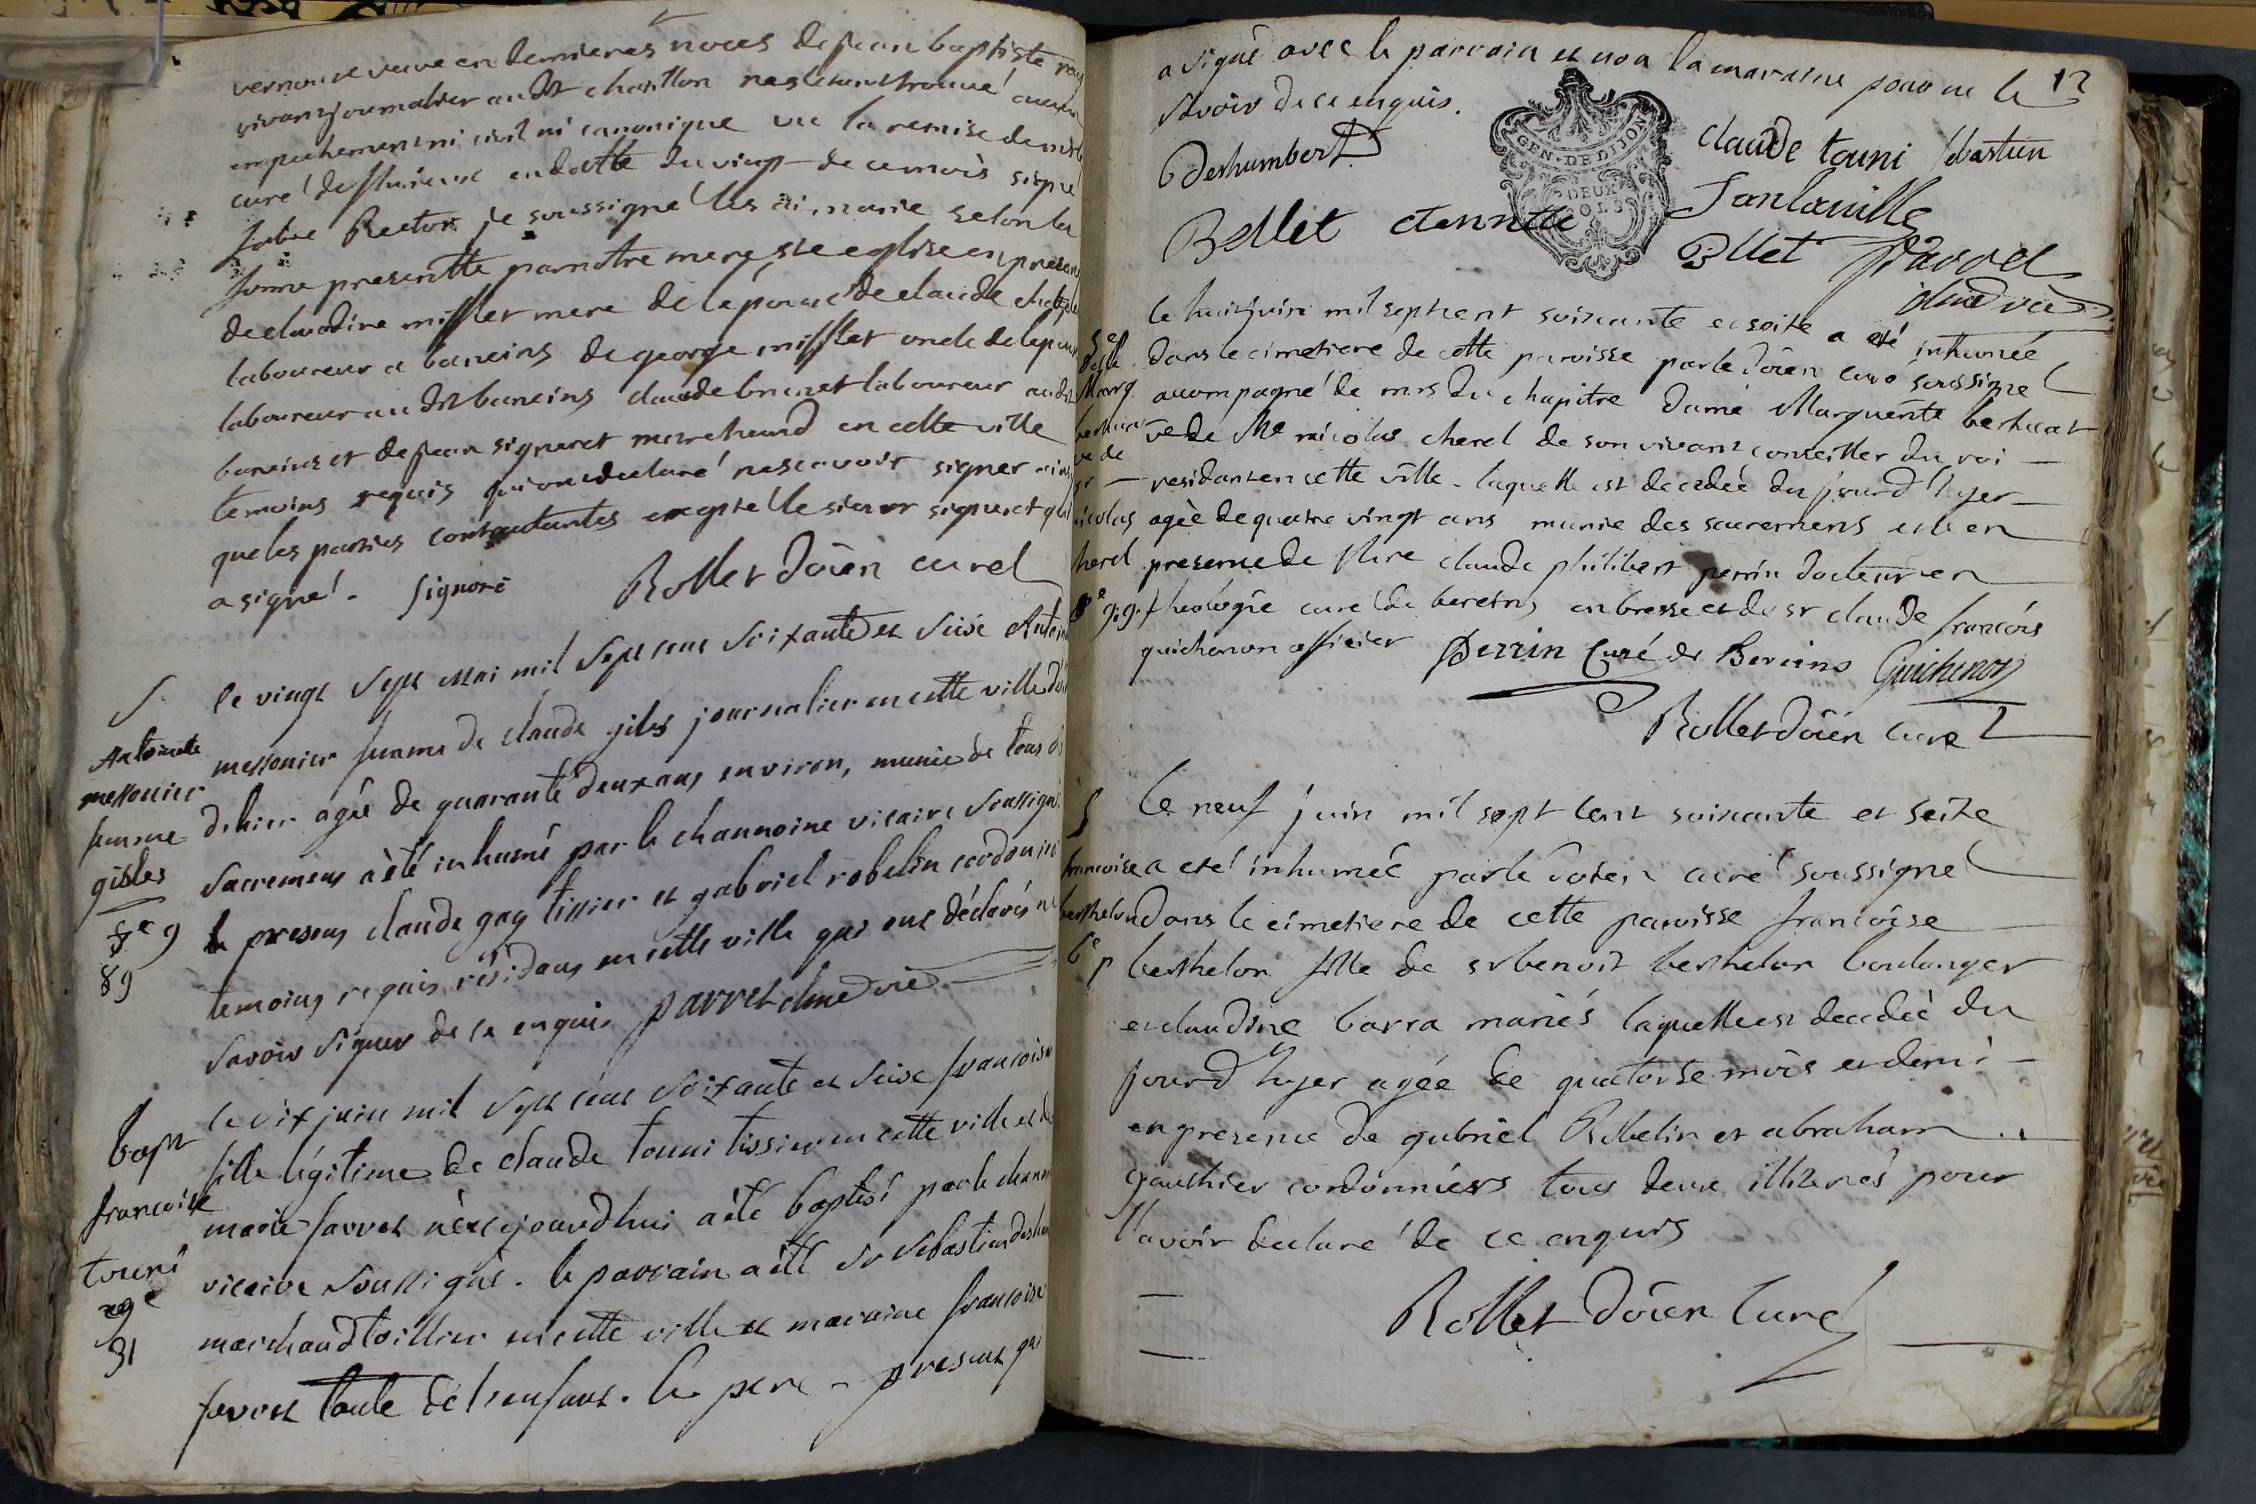 vernou se veuve en dernieres noces de jean baptiste
vivant journalier audit chatillon ne s'etant trouvé aucun
empechement ni civil ni canonique vu la remise de mr le
curé de fleurieux en datte du vingt de ce mois signé
fabre Rector je soussigné les ai marié selon la
forme presentte par notre mere ste eglise en presence
de claudine mifflet mere de l'epouse de claude
laboureur a baneins de george mifflet oncle de lepouse
laboureur audit baneins claude brunet laboureur audit
baneins et de jean signeret marchand en cette ville
temoins requis qui ont declaré ne scavoir signer ainsi
que les parties contractantes excepté le sieur signeret qui
a signé. signoré Rollet doïen curé
S.
Antoinette
messonier
femme
gibles
8e 9
89
le vingt sept mai mil sept cent soixante et seise Antoinette
messonier femme de claude gibes journalier en cette ville
d'hier agée de quarante deux ans environ, munie de tous
sacremens a été inhumé par le channoine vicaire soussigné
presens claude gay tissier et gabriel robelin cordonnier
temoins requis résidans en cette ville qui ont déclarés ne
savoir signer de ce enquis parret chne vic
bapt
francoise
touni
29e
31
le six juin mil sept cent soixante et seise francoise
fille légitime de claude touni tissier en cette ville et de
marie favret née cejourdhui a été baptisé par le channoine
vicaire soussigné. le parrain a été sr sebastien deshumbert
marchand toillier en cette ville et maraine francoise
favret tante de l'enfant. le pere present qui
12
a signé avec le parrain et non la maraine pour ne le
savoir de ce enquis.
GEN · DE DIJON
DEUX
SOLS
Deshumbert
claude touni sebastien
Bellet etiennette
Bllet parret
chne vic
Se
Delle
Marg
berthuat
ve de
sr
nicolas
cherel
8e g.g.
le huit juin mil sept cent soixante et seite a eté inhumée
dans le cimetiere de cette paroisse par le doïen curé soussigné
accompagné de mrs du chapitre dame Marguerite berthuat
ve de Me nicolas cherel de son vivant conseiller du roi
residant en cette ville. laquelle est decedée du jourd'hyer
agée de quatre vingt ans munie des sacremens en
presence de Mre claude philibert perrin docteur en
theologie curé de bereins en bresse et de sr claude françois
guichenon officier Perrin Curé de Bereins Guichenon
Rollet doïen curé
S
francoise
berthelon
6e p
le neuf juin mil sept cent soixante et seite
a eté inhumée par le doïen curé soussigné
dans le cimetiere de cette paroisse françoise
berthelon fille de sr benoit berthelon boulanger
et claudine barra mariés laquelle est decedée du
jourd'hyer agée de quatorse mois et demi
en presence de gabriel Robelin et abraham
gauthier cordonniers tous deux illiterés pour
l'avoir declaré de ce enquis
Rollet doïen Curé